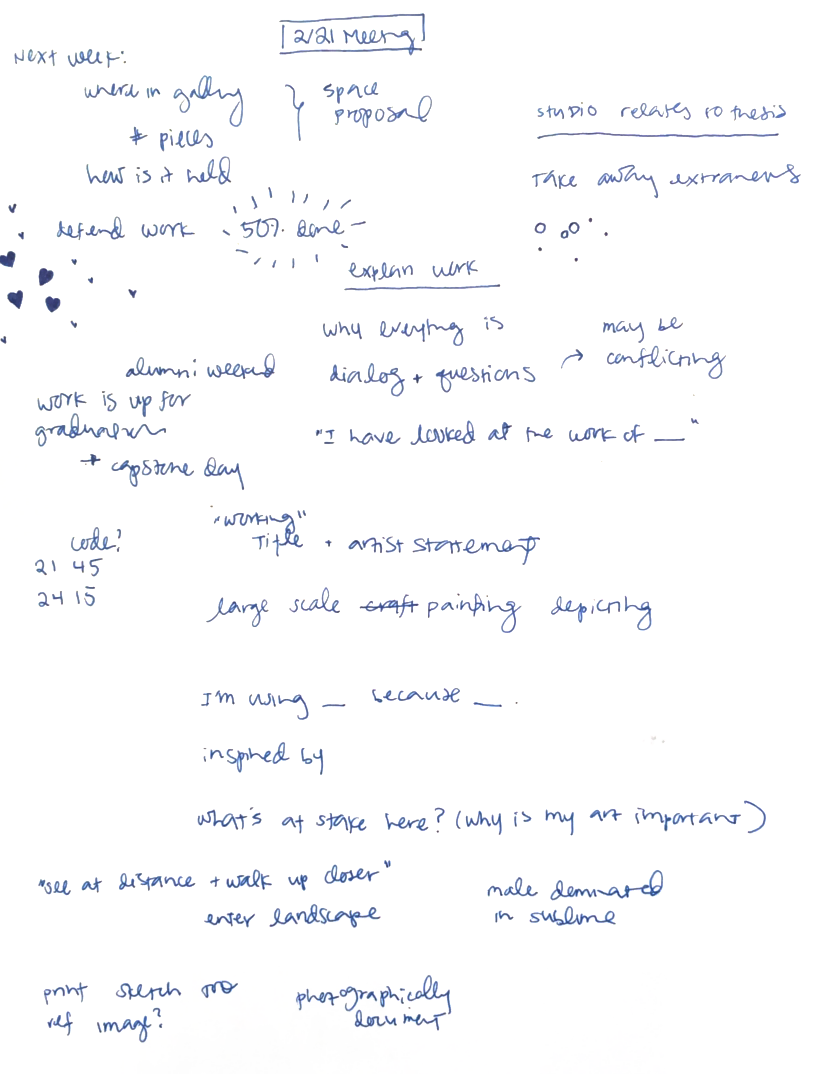 2/21 Meeting
Next week:
where in gallery
# pieces
how is it held
space
proposal
studio relates to thesis
Take away extraneous
defend work
50% done
explain work
why everything is
dialog + questions
→ may be
conflicting
alumni weekend
work is up for
graduation
+ capstone day
"I have looked at the work of __"
"working"
Title + artist statement
code?
21 45
24 15
large scale craft painting depicting
I'm using __ because __.
inspired by
what's at stake here? (why is my art important)
"see at distance + walk up closer"
enter landscape
male dominated
in sublime
print sketch
ref image?
photographically
document